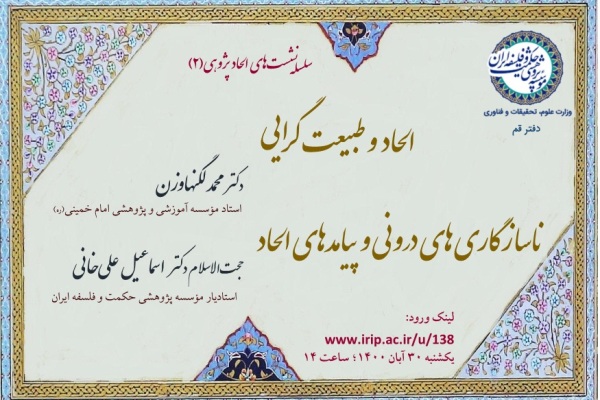 سلسله نشست‌های الحاد پژوهی (۲)
مؤسسه پژوهشی حکمت و فلسفه ایران
وزارت علوم، تحقیقات و فناوری
دفتر قم
الحاد و طبیعت گرایی
دکتر محمد لگنهاوزن
استاد مؤسسه آموزشی و پژوهشی امام خمینی(ره)
ناسازگاری های درونی و پیامدهای الحاد
حجت‌الاسلام دکتر اسماعیل علی‌خانی
استادیار مؤسسه پژوهشی حکمت و فلسفه ایران
لینک ورود:
www.irip.ac.ir/u/138
یکشنبه ۳۰ آبان ۱۴۰۰؛ ساعت ۱۴